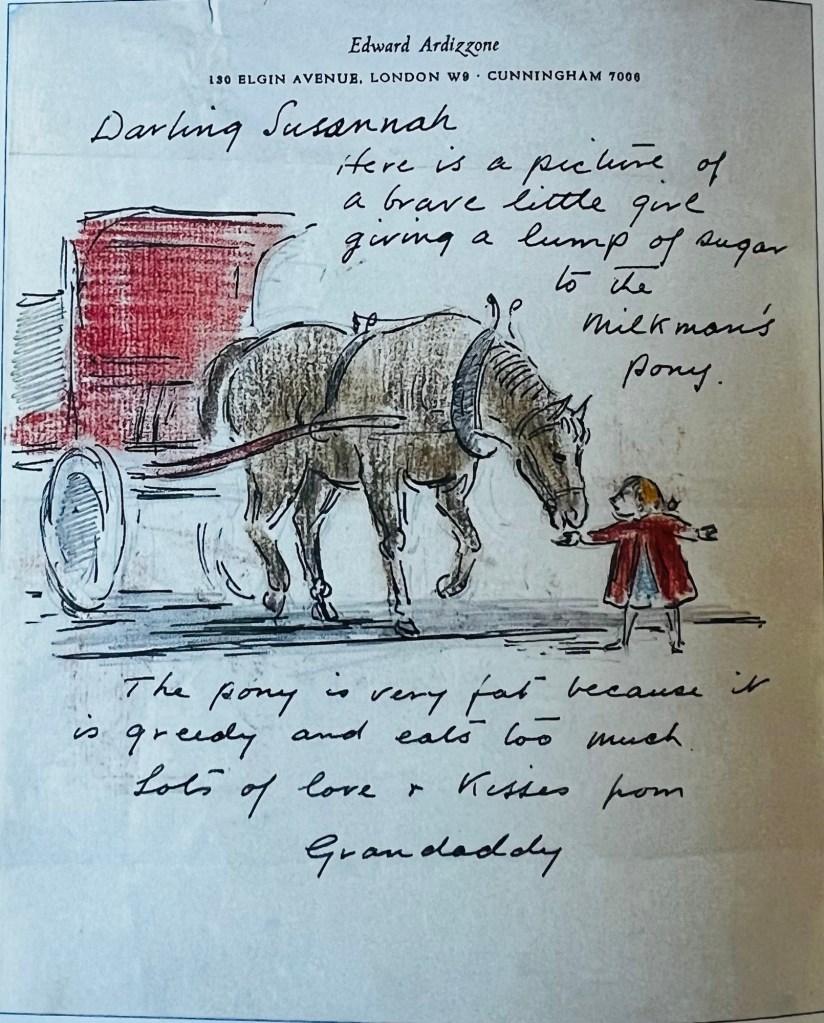 Edward Ardizzone
130 ELGIN AVENUE, LONDON W9 · CUNNINGHAM 7006
Darling Susannah
Here is a picture of
a brave little girl
giving a lump of sugar
to the
Milkman's
pony.
The pony is very fat because it
is greedy and eats too much.
Lots of love & Kisses from
Grandaddy